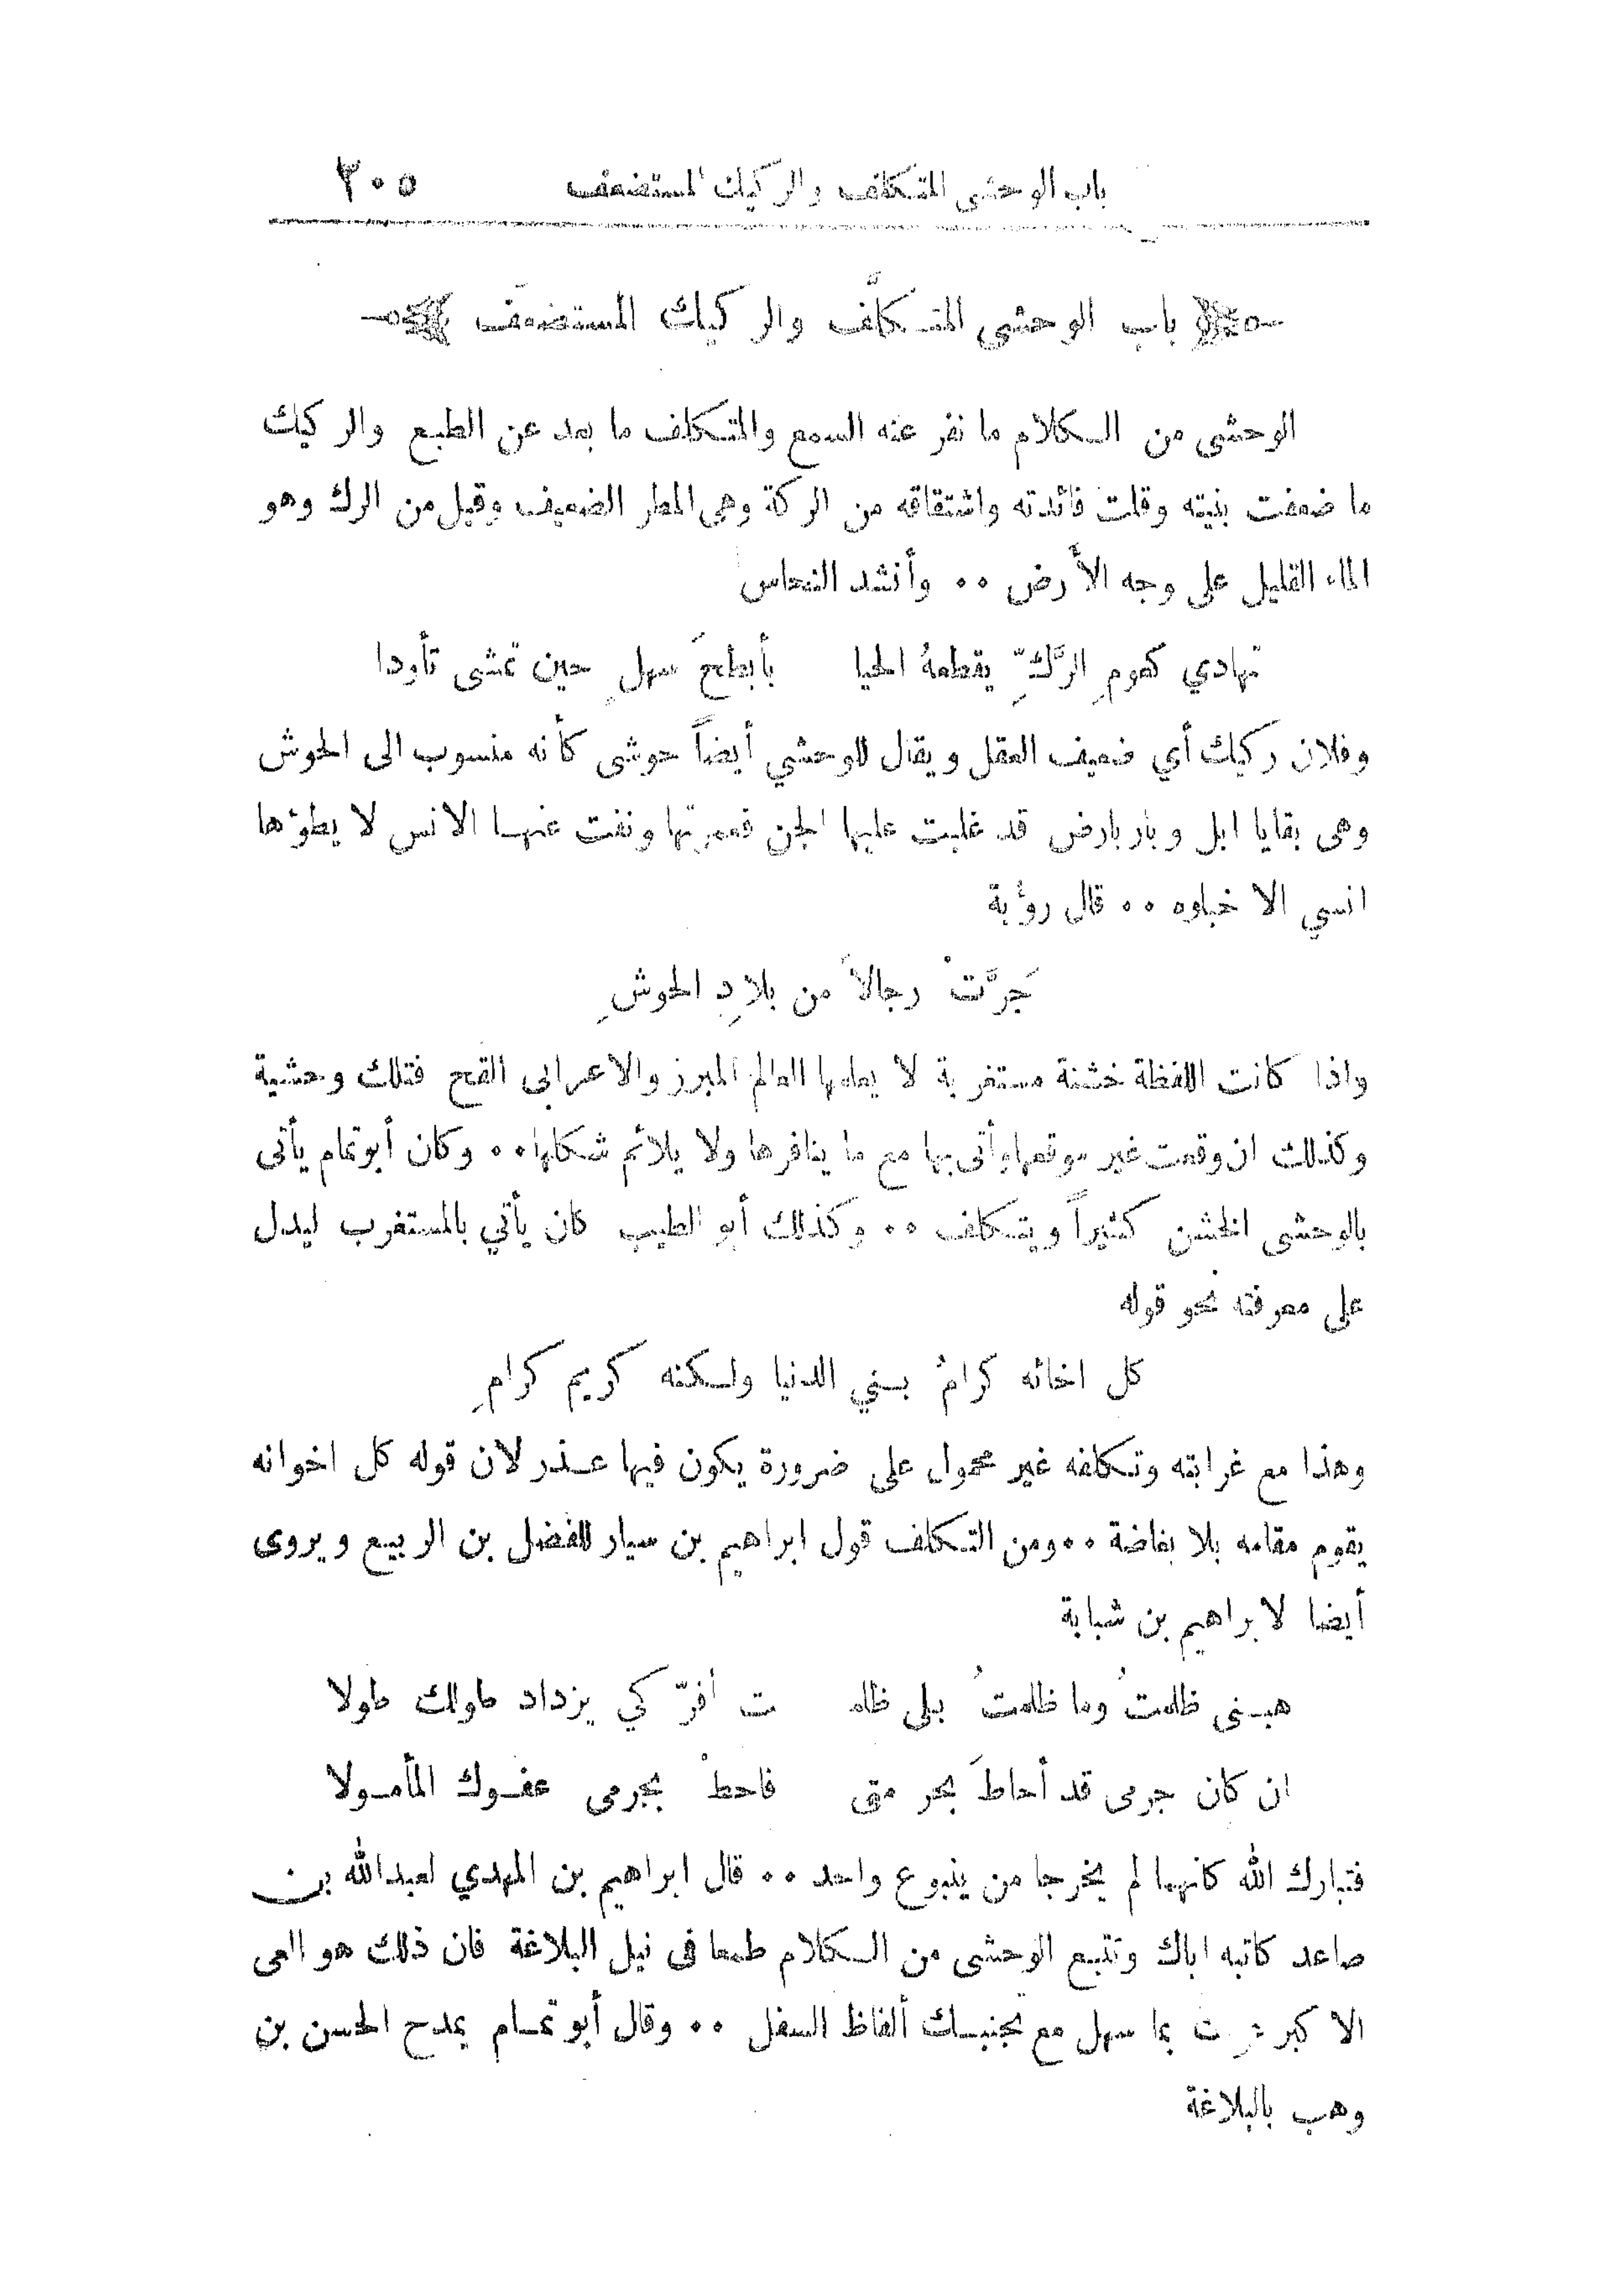 باب الوحشى المتكلف والركيك المستضعف ٢٠٥
باب الوحشى المتكلَّف والركيك المستضعَف
الوحشى من الكلام ما نفر عنه السمع والمتكلف ما بعد عن الطبع والركيك
ما ضعفت بنيته وقلت فائدته واشتقاقه من الركة وهى المطر الضعيف وقيل من الرك وهو
الماء القليل على وجه الأرض ٠٠ وأنشد النحاس
تهادي كعومِ الرّكِّ يقطعهُ الحيا بأبطحَ سهلٍ حين تمشى تأودا
وفلان ركيك أي ضعيف العقل ويقال للوحشي أيضاً حوشى كأنه منسوب الى الحوش
وهى بقايا ابل وبار بارض قد غلبت عليها الجن فعمرتها ونفت عنها الانس لا يطؤها
انسي الا خبلوه ٠٠ قال رؤبة
جَرَّتْ رجالاً من بلادِ الحوشِ
واذا كانت اللفظة خشنة مستغربة لا يعلمها العالم المبرز والاعرابى القح فتلك وحشية
وكذلك ان وقعت غير موقعها وأتى بها مع ما ينافرها ولا يلائم شكلها ٠٠ وكان أبو تمام يأتى
بالوحشى الخشن كثيراً ويتكلف ٠٠ وكذلك أبو الطيب كان يأتي بالمستغرب ليدل
على معرفته نحو قوله
كل اخائه كرامُ بني الدنيا ولكنه كريم كرامِ
وهذا مع غرابته وتكلفه غير محمول على ضرورة يكون فيها عذر لان قوله كل اخوانه
يقوم مقامه بلا بغاضة ٠٠ ومن التكلف قول ابراهيم بن سيار للفضل بن الربيع ويروى
أيضا لابراهيم بن شبابة
هبنى ظلمتُ وما ظلمتُ بلى ظلمـ ـت أقرّ كي يزداد طولك طولا
ان كان جرمى قد أحاطَ بحرمتى فاحطْ بجرمى عفوك المأمولا
فتبارك الله كانهما لم يخرجا من ينبوع واحد ٠٠ قال ابراهيم بن المهدي لعبدالله بن
صاعد كاتبه اياك وتتبع الوحشى من الكلام طمعا فى نيل البلاغة فان ذلك هو العى
الاكبر بما سهل مع تجنبك ألفاظ السفل ٠٠ وقال أبو تمام يمدح الحسن بن
وهب بالبلاغة